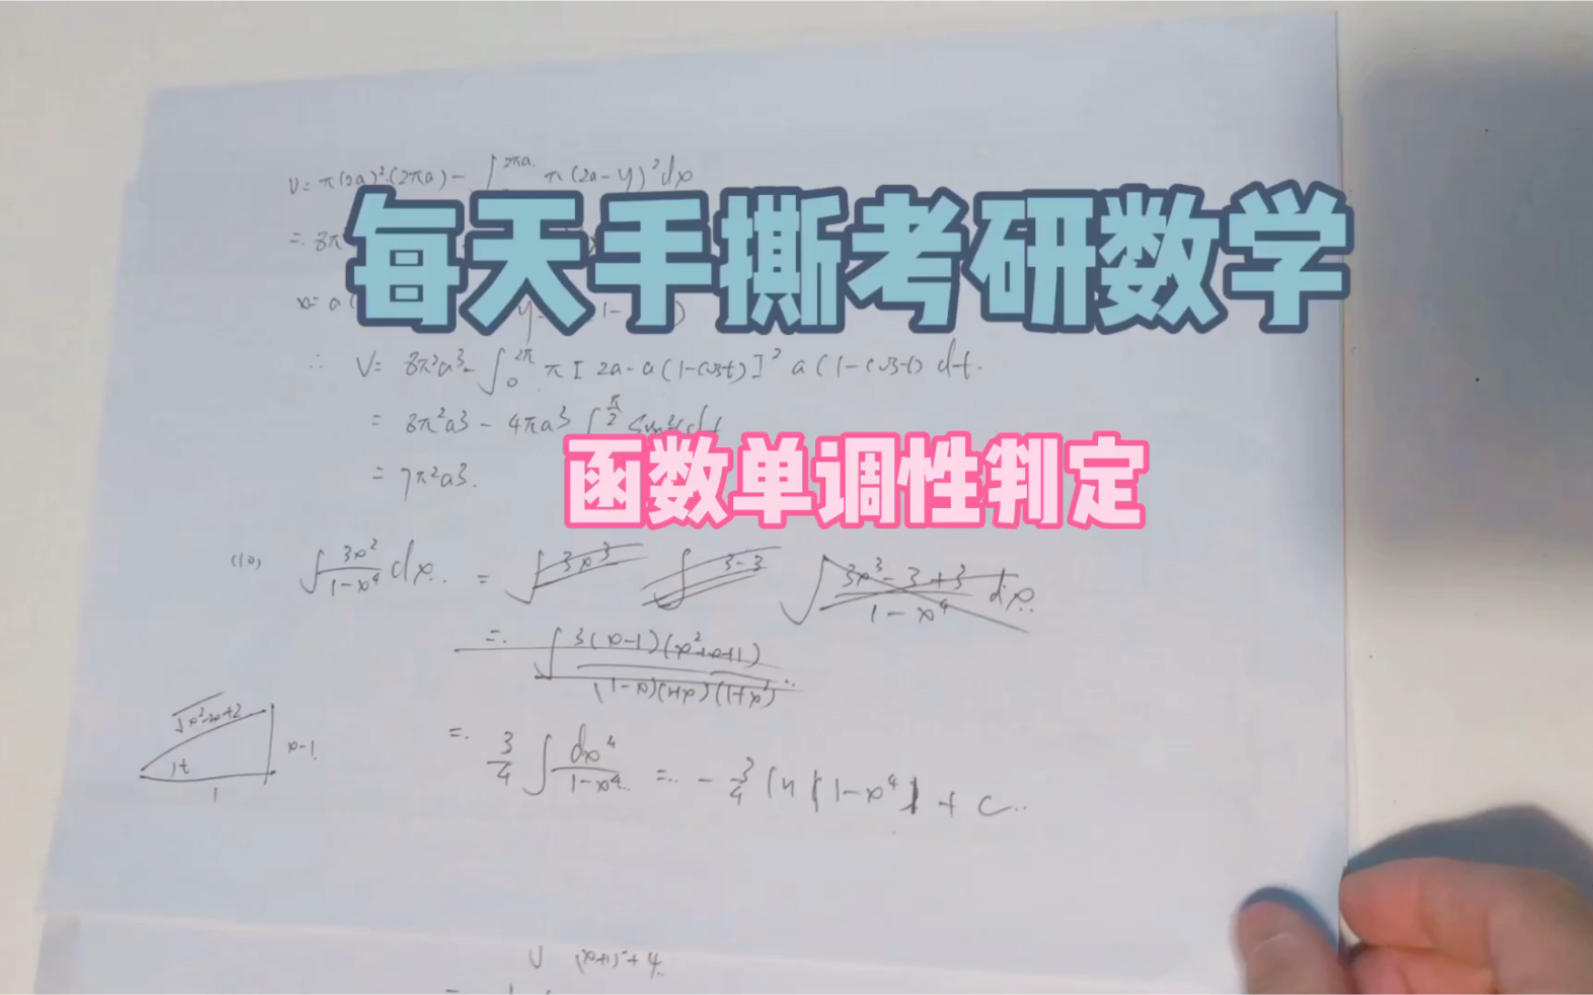 V= π(2a)²·(2πa) - ∫ 2πa π(2a-y)²dx
每天手撕考研数学
= 8π
x= a(
∴ V= 8π²a³- ∫₀^2π π[2a-a(1-cost)]² a(1-cost) dt.
= 8π²a3 - 4πa3 ∫
函数单调性判定
= 7π²a3.
(10) ∫ 3x²/1-x⁴ dx. = ∫ 3x³ ∫ 3-3 ∫ 3x³-3+3/1-x⁴ dx.
=. ∫ 3(x-1)(x²+x+1)/(1-x)(1+x)(1+x²)
√x²-2x+2
x-1
t
1
=. 3/4 ∫ dx⁴/1-x⁴ =.. - 3/4 ln|1-x⁴| + C..
(x+1)²+4